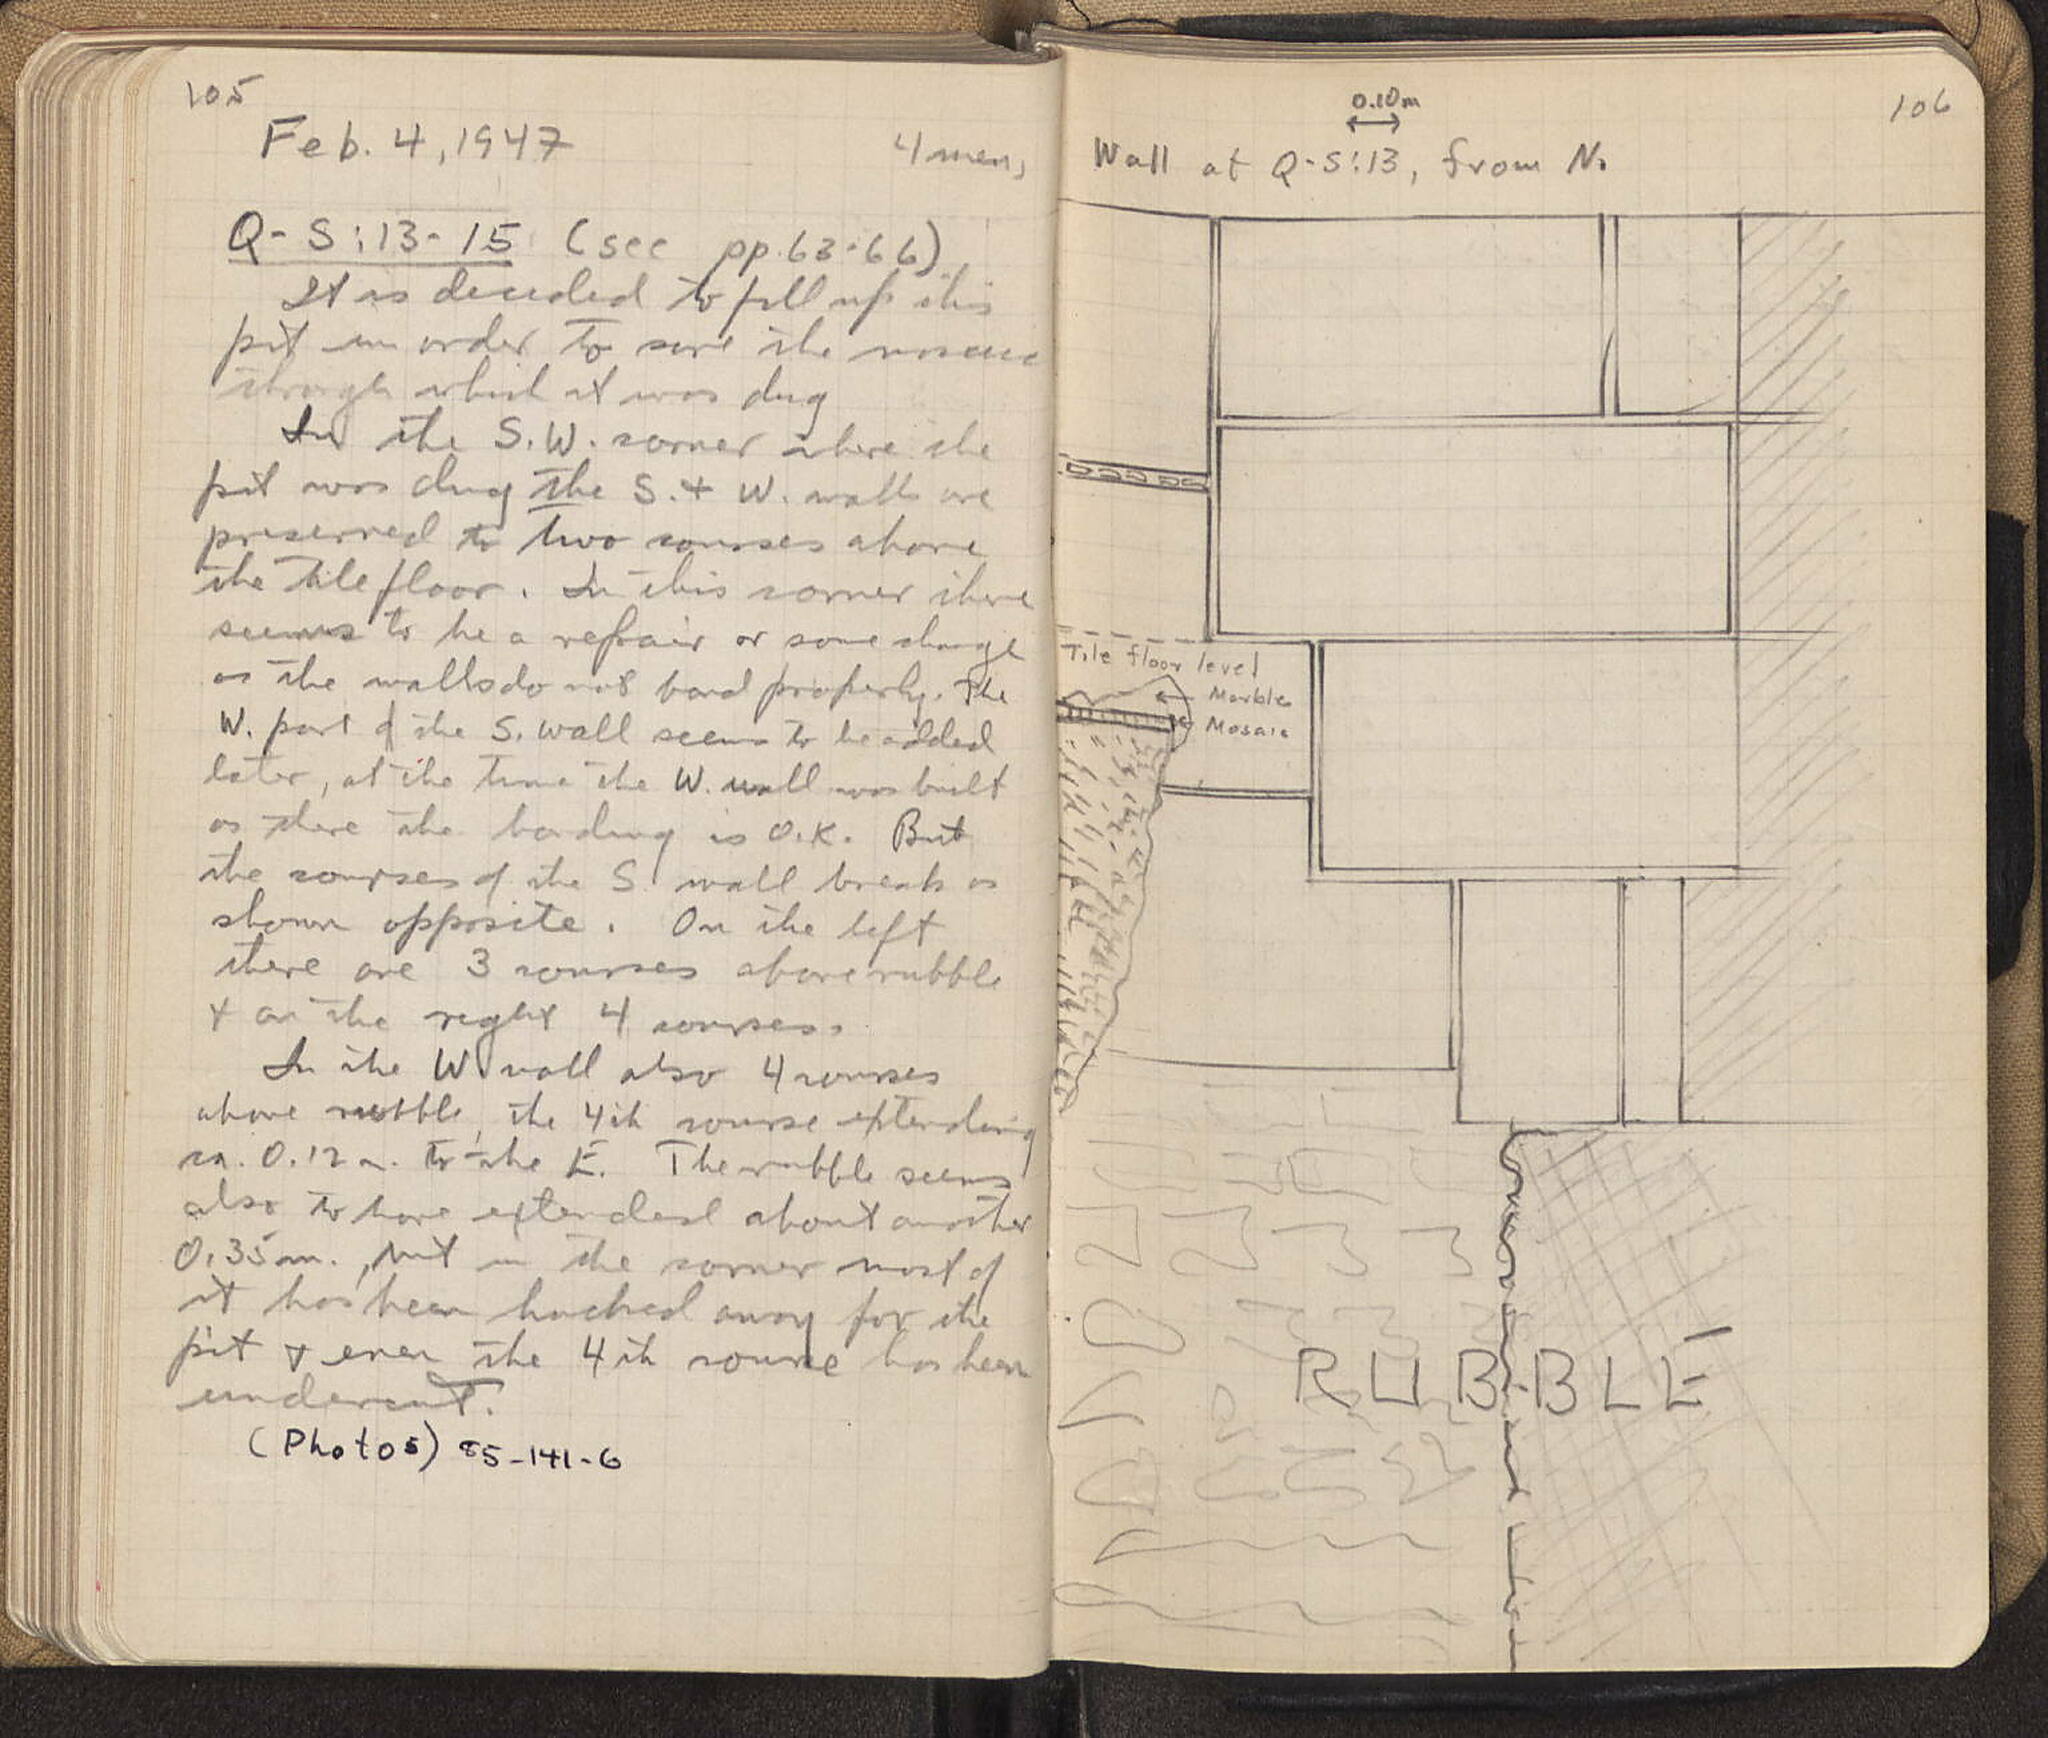 105
Feb. 4, 1947 4 men,
Q-S:13-15 (see pp. 63-66)
It is decided to fill up this
pit in order to save the mosaic
through which it was dug
In the S.W. corner where the
pit was dug the S. + W. walls are
preserved to two courses above
the tile floor. In this corner there
seems to be a repair or some change
as the walls do not bond properly. The
W. part of the S. wall seems to be added
later, at the time the W. wall was built
as there the bonding is O.K. But
the courses of the S. wall break as
shown opposite. On the left
there are 3 courses above rubble
+ on the right 4 courses.
In the W wall also 4 courses
above rubble, the 4th course extending
ca. 0.12 m. to the E. The rubble seems
also to have extended about another
0.35 m., but in the corner most of
it has been hacked away for the
pit + even the 4th course has been
undercut.
(Photos) 85-141-6
106
0.10m
Wall at Q-S:13, from N.
Tile floor level
Marble
Mosaic
RUBBLE